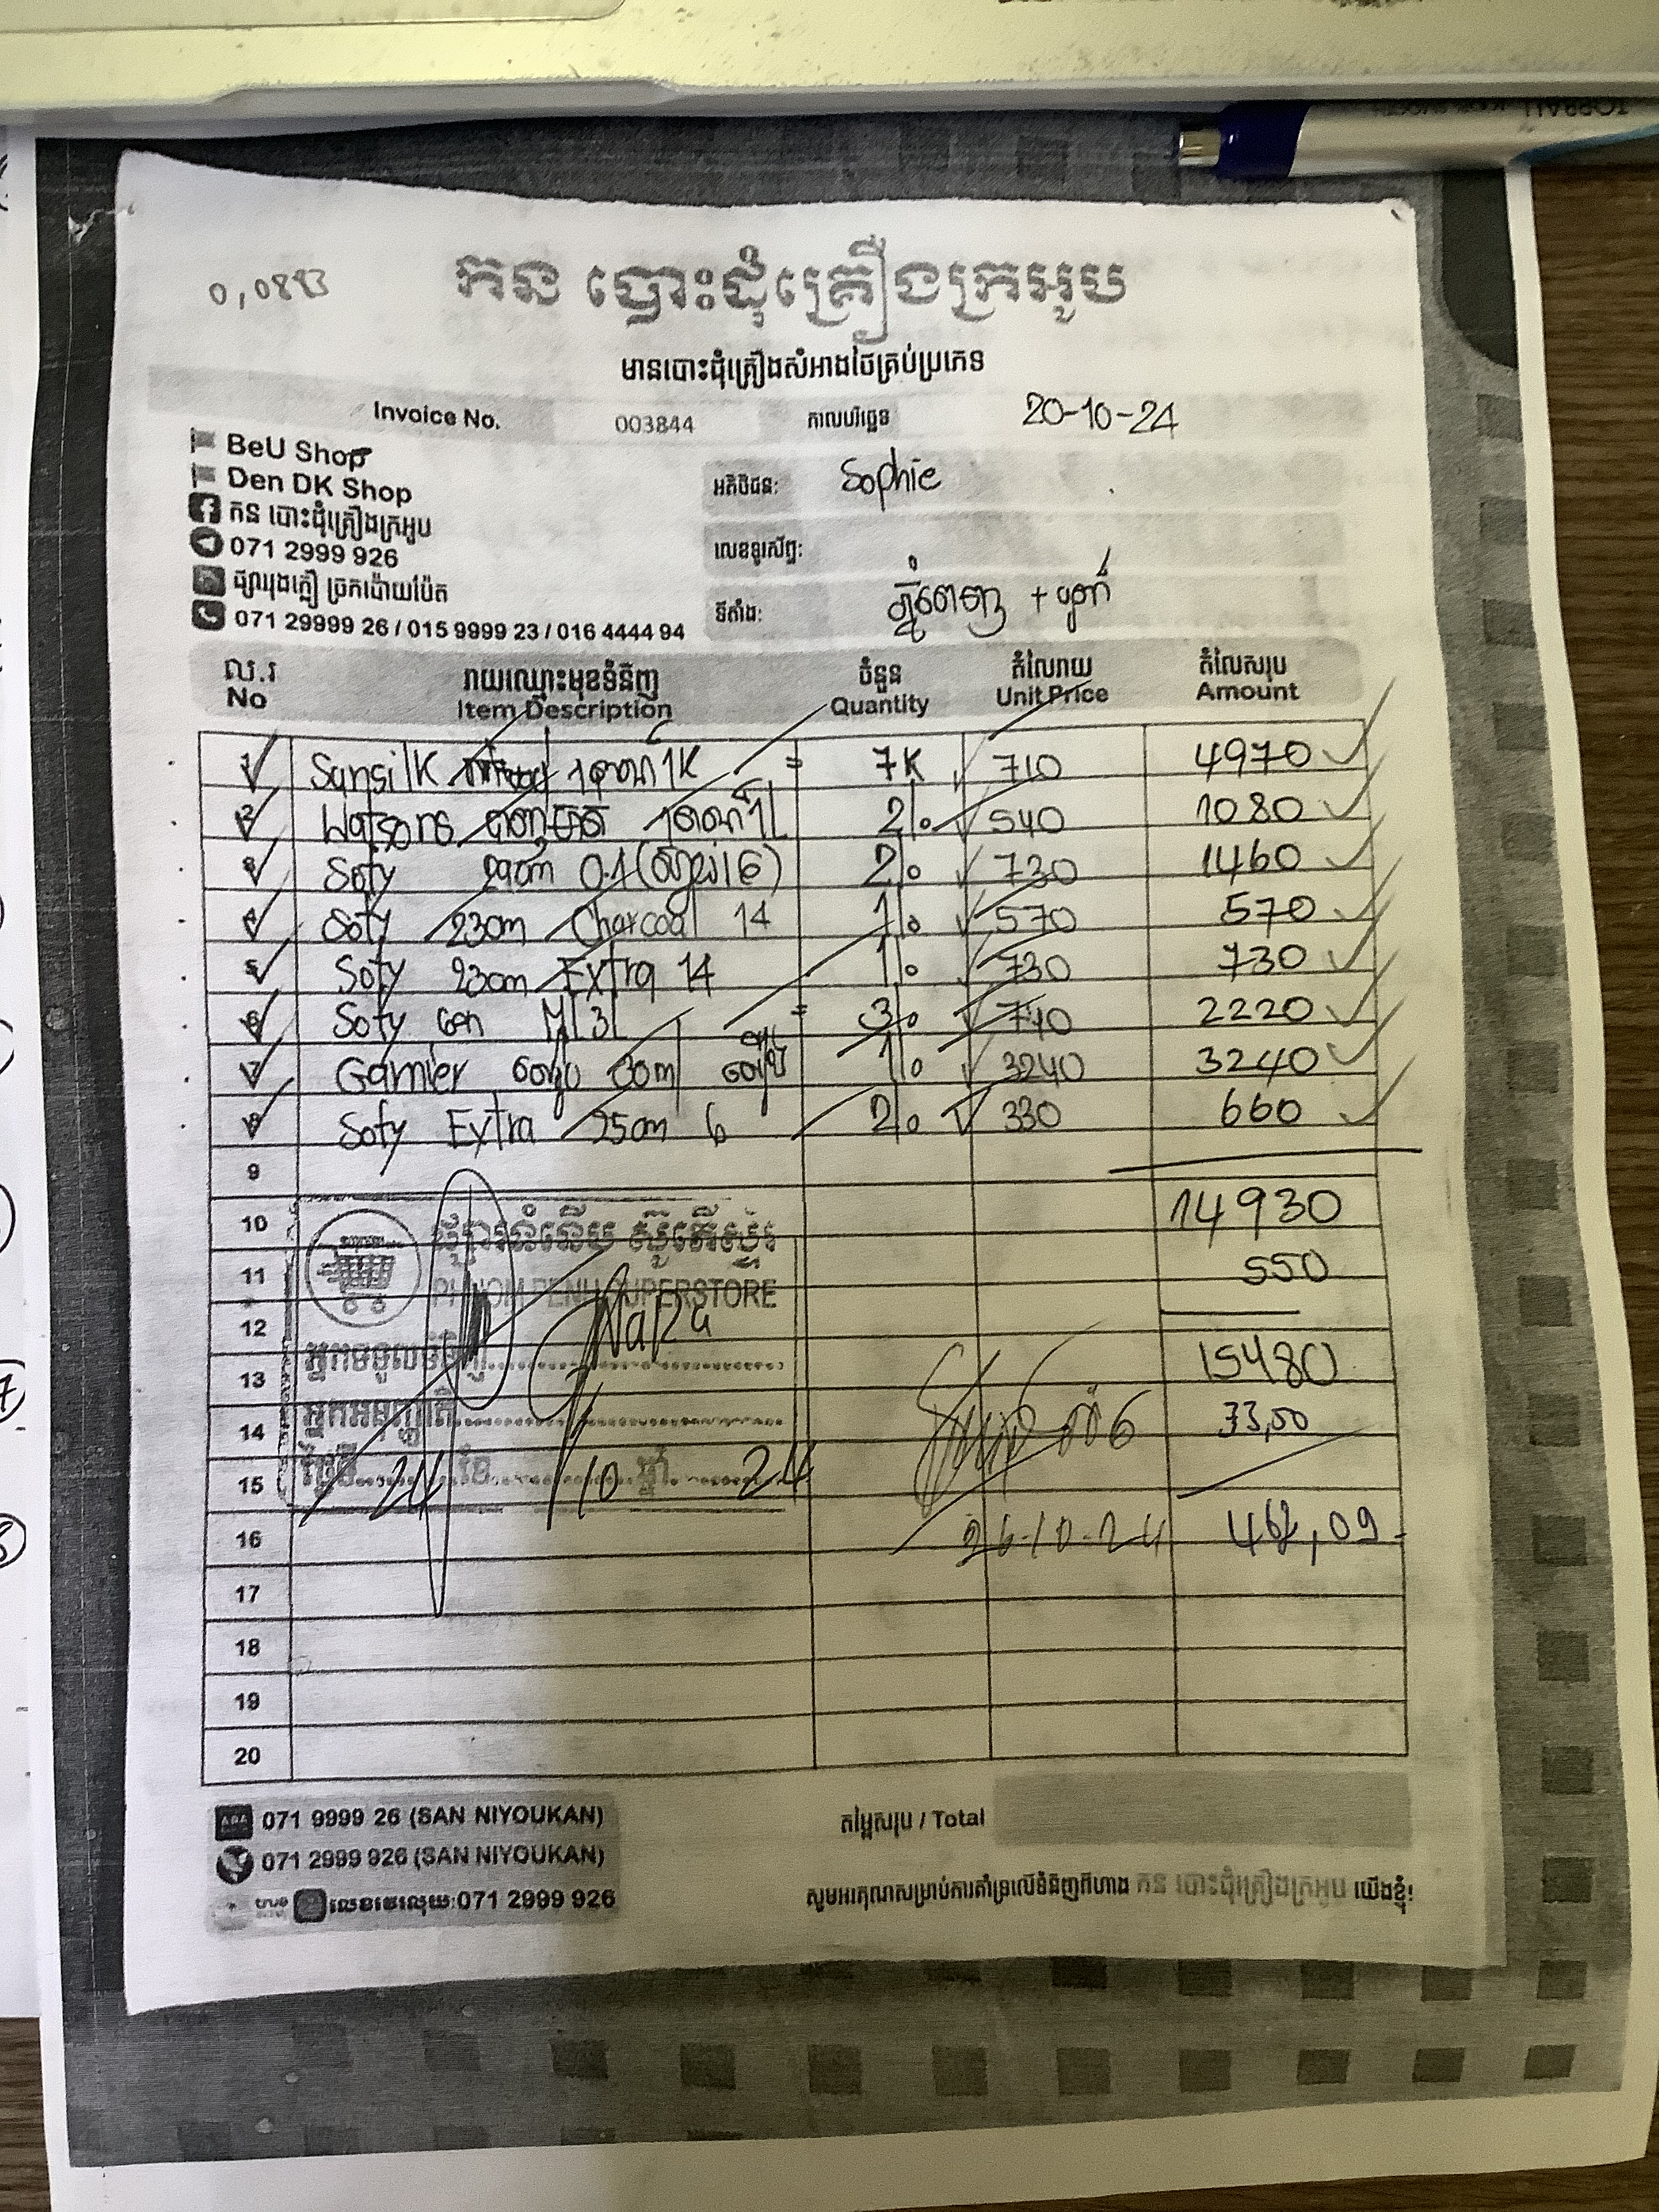 0,0893
កន បោះដុំគ្រឿងក្រអូប
មានបោះដុំគ្រឿងសំអាងថៃគ្រប់ប្រភេទ
Invoice No. 003844 កាលបរិច្ឆេទ 20-10-24
BeU Shop
Den DK Shop
កន បោះដុំគ្រឿងក្រអូប
071 2999 926
ផ្សាររុងក្លឿ ច្រកប៉ោយប៉ែត
071 29999 26 / 015 9999 23 / 016 4444 94
អតិថិជន: Sophie
លេខទូរស័ព្ទ:
ទីតាំង: ភ្នំពេញ +
ល.រ រាយឈ្មោះមុខទំនិញ ចំនួន តំលៃរាយ តំលៃសរុប
No Item Description Quantity Unit Price Amount
1 Sunsilk 1K = 7K 710 4970
2 Watsons 1L 2 540 1080
3 Sofy 29cm 0.1 ( 16) 2 730 1460
4 Sofy 23cm Charcoal 14 1 570 570
5 Sofy 23cm Extra 14 1 730 730
6 Sofy Gen = 3 740 2220
7 Garnier 30ml 1 3240 3240
8 Sofy Extra 25cm 6 2 330 660
9
10 14930
11 550
12
13 15480
14 33,50
15
16 26-10-24 ,09-
17
18
19
20
PHNOM PENH SUPERSTORE
អ្នកទទួលទំនិញ
អ្នកអនុញ្ញាតិ
ថ្ងៃទី 24 ខែ 10 ឆ្នាំ 24
071 9999 26 (SAN NIYOUKAN)
071 2999 926 (SAN NIYOUKAN)
true លេខវេរលុយ:071 2999 926
តម្លៃសរុប / Total
សូមអរគុណសម្រាប់ការគាំទ្រលើទំនិញពីហាង កន បោះដុំគ្រឿងក្រអូប យើងខ្ញុំ!